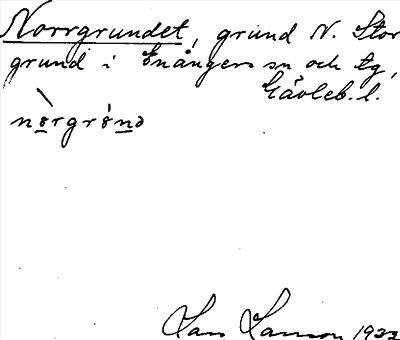 Norrgrundet, grund N. Stor
grund i Enångers sn och tg,
Gävleb. l.
nørgrønə
Lars Larsson 1932